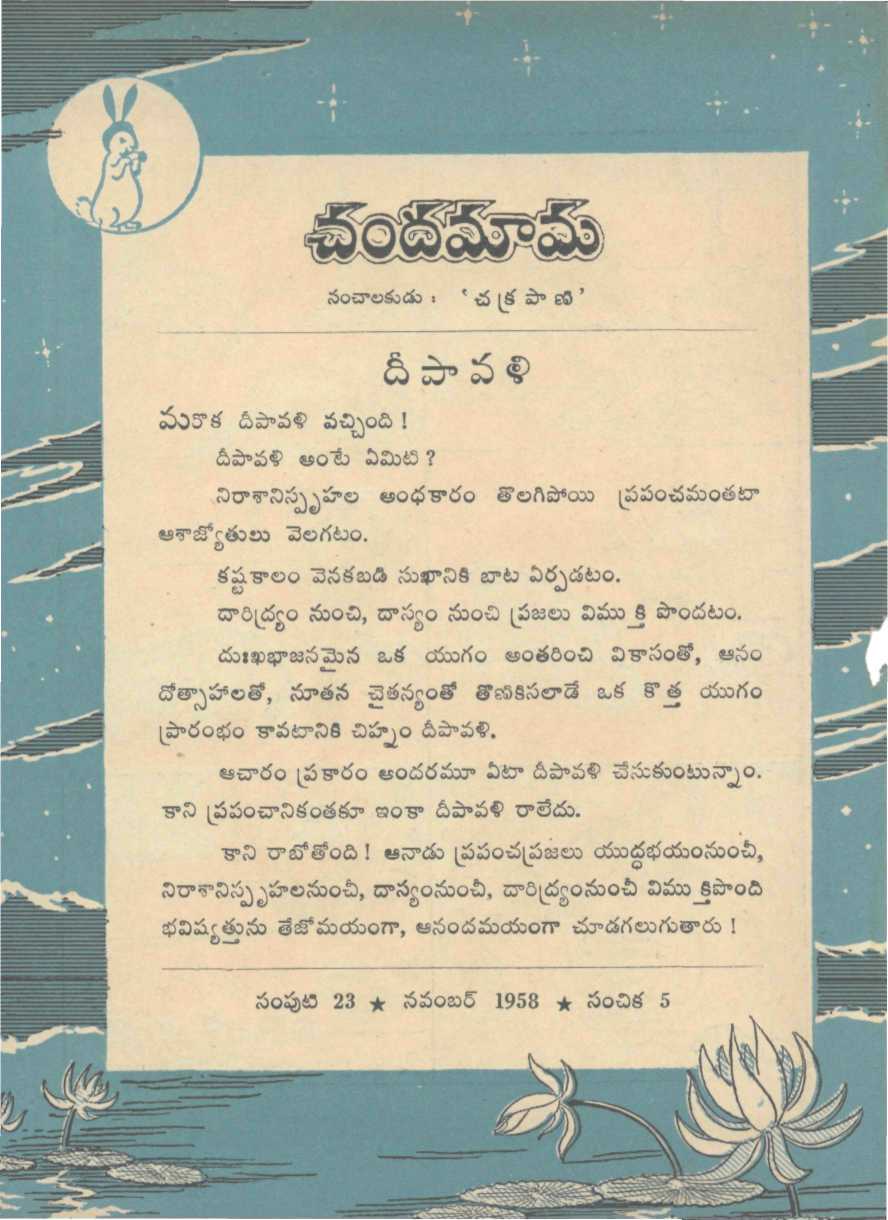 చందమామ
సంచాలకుడు : ‘చక్రపాణి’
దీపావళి
మరొక దీపావళి వచ్చింది !
దీపావళి అంటే ఏమిటి ?
నిరాశానిస్పృహల అంధకారం తొలగిపోయి ప్రపంచమంతటా
ఆశాజ్యోతులు వెలగటం.
కష్టకాలం వెనకబడి సుఖానికి బాట ఏర్పడటం.
దారిద్ర్యం నుంచి, దాస్యం నుంచి ప్రజలు విముక్తి పొందటం.
దుఃఖభాజనమైన ఒక యుగం అంతరించి వికాసంతో, ఆనం
దోత్సాహాలతో, నూతన చైతన్యంతో తొణికిసలాడే ఒక కొత్త యుగం
ప్రారంభం కావటానికి చిహ్నం దీపావళి.
ఆచారం ప్రకారం అందరమూ ఏటా దీపావళి చేసుకుంటున్నాం.
కాని ప్రపంచానికంతకూ ఇంకా దీపావళి రాలేదు.
కాని రాబోతోంది ! ఆనాడు ప్రపంచప్రజలు యుద్ధభయంనుంచీ,
నిరాశానిస్పృహలనుంచీ, దాస్యంనుంచీ, దారిద్ర్యంనుంచీ విముక్తిపొంది
భవిష్యత్తును తేజోమయంగా, ఆనందమయంగా చూడగలుగుతారు !
సంపుటి 23 ★ నవంబర్ 1958 ★ సంచిక 5